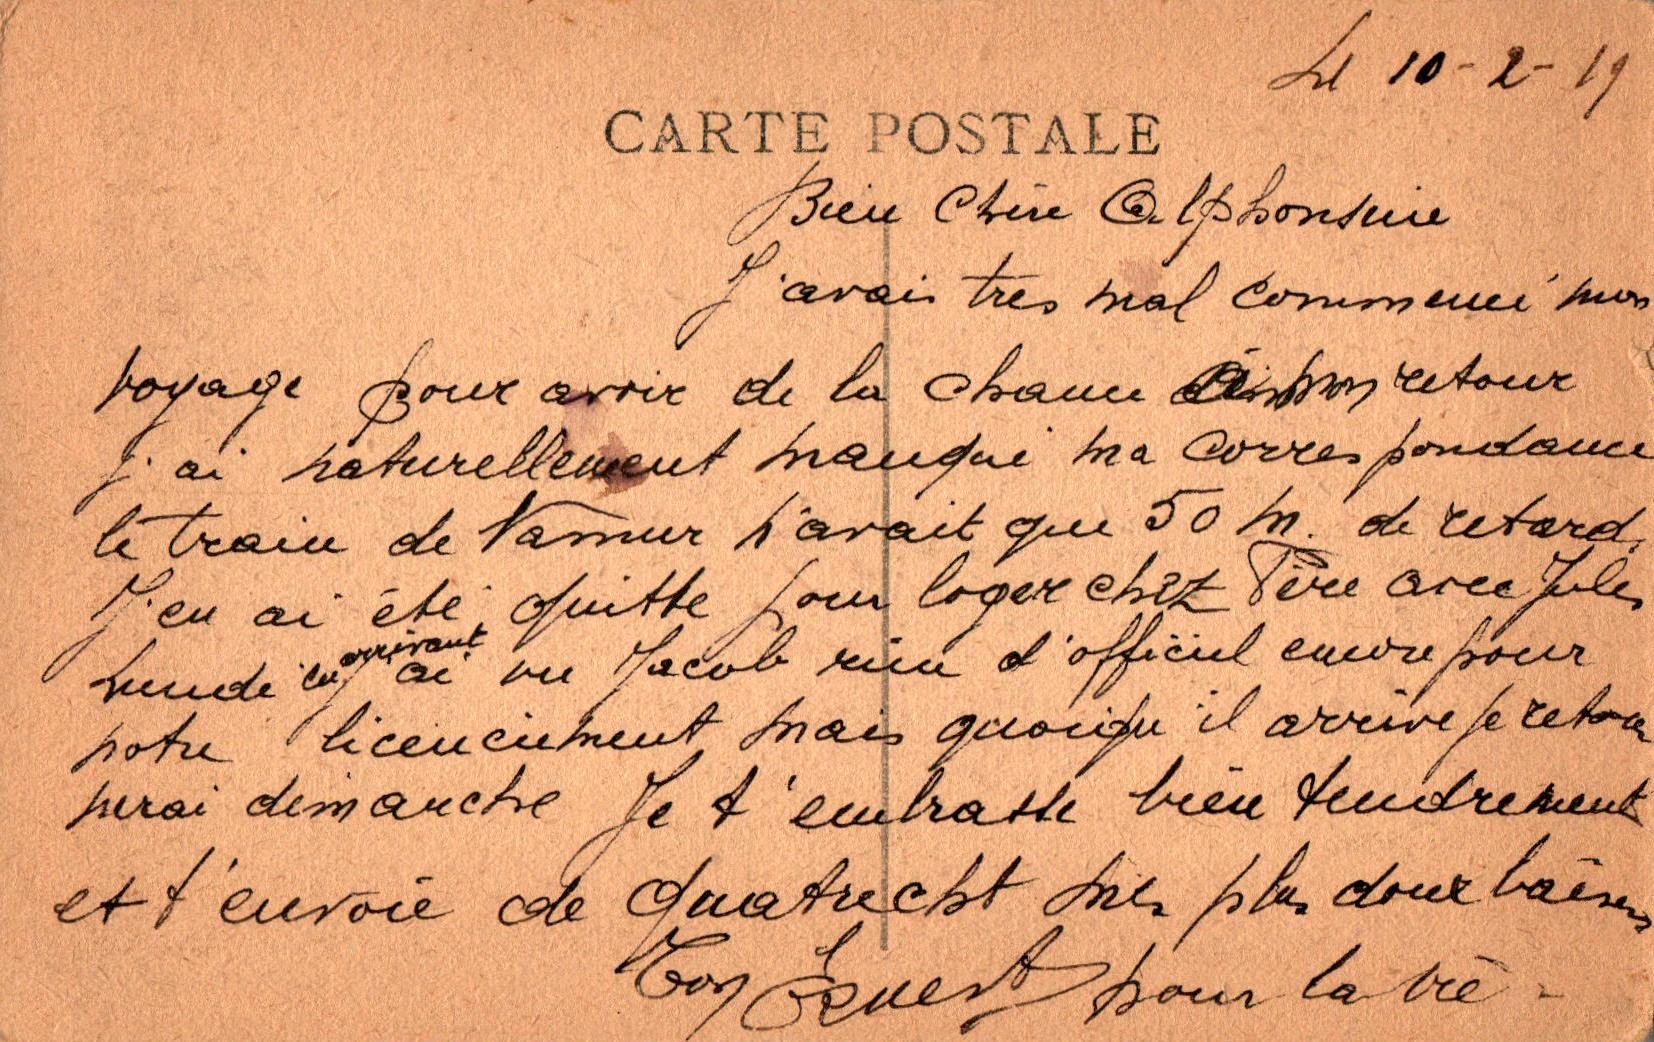 Le 10-2-19
CARTE POSTALE
Bien Chère Alphonsine
J'avais tres mal commencé mon
voyage pour avoir de la chance à mon retour
j'ai naturellement manqué ma correspondance
le train de Namur n'avait que 50 m. de retard.
J'en ai été quitte pour loger chez Père avec Jules
Lundi en arrivant j'ai vu Jacob rien d'officiel encore pour
notre licenciement mais quoiqu'il arrive je retour
nerai dimanche Je t'embrasse bien tendrement
et t'envoie de Quatrecht mes plus doux baisers
Ton Ernest pour la vie -